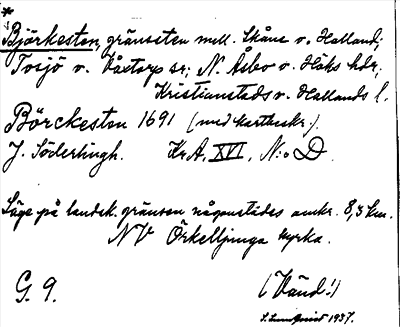 *
Björkesten, gränssten mell. Skåne o. Halland;
Tosjö o. Våxtorp sr; N. Åsbo o. Höks hdr;
Kristianstads o. Hallands l.
Börckesten 1691 (med kartbeskr.).
J. Söderlingh. KrA, XVI, N:o D.
Läge på landsk. gränsen någonstädes omkr. 8,5 km.
NV Örkelljunga kyrka.
G. 9. (Vänd!)
S. Lundquist 1937.